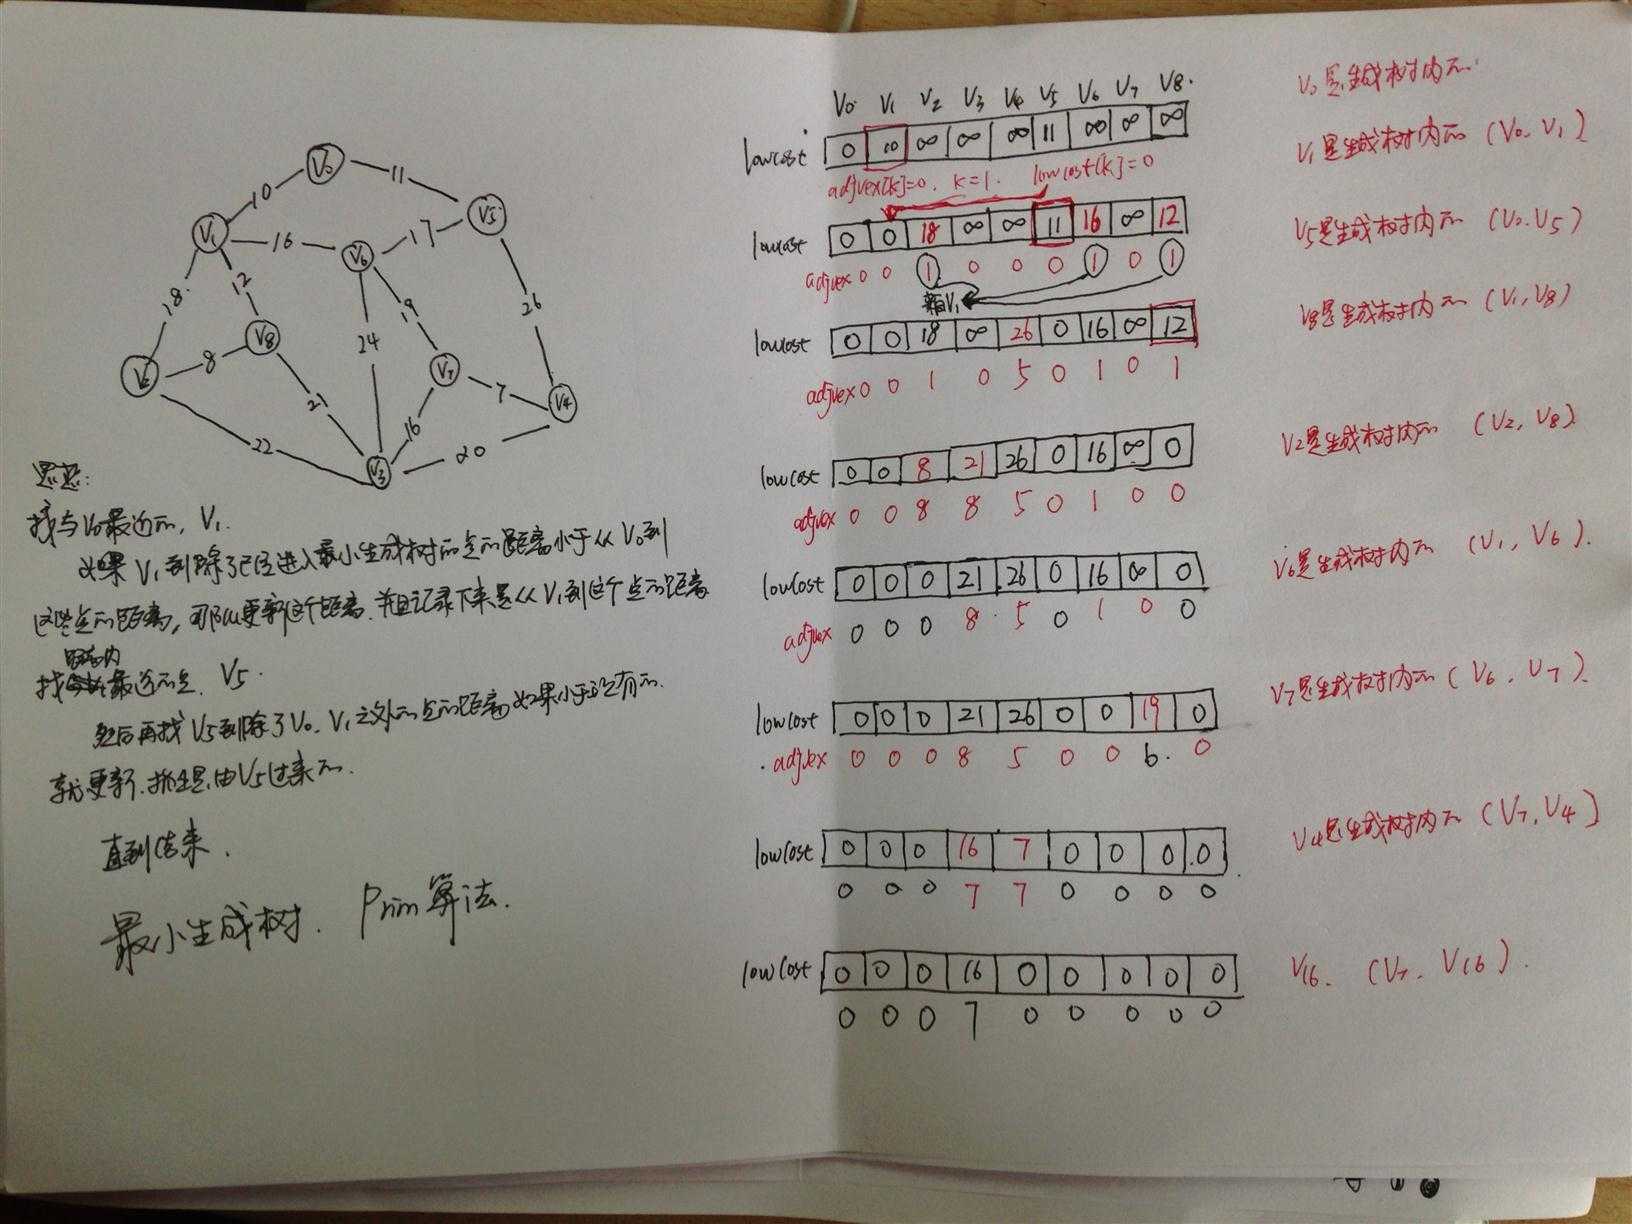 V0
10
11
V1
V5
16
17
V6
18
12
19
26
24
V8
8
V7
V2
7
V4
21
16
22
20
V3
思想：
找与V0最近的，V1.
如果V1到除了已经进入最小生成树的点的距离小于从V0到
这些点的距离，那么更新这个距离.并且记录下来是从V1到这个点的距离
找 最近的点. V5.
然后再找V5到除了V0.V1之外的点的距离如果小于现有的.
就更新. 由V5过来的.
直到结束.
最小生成树. Prim算法.
V0 V1 V2 V3 V4 V5 V6 V7 V8.
lowcost 0 10 ∞ ∞ ∞ 11 ∞ ∞ ∞
adjvex[k]=0. k=1. lowcost[k]=0
lowcost 0 0 18 ∞ ∞ 11 16 ∞ 12
adjvex 0 0 1 0 0 0 1 0 1
V1
lowcost 0 0 18 ∞ 26 0 16 ∞ 12
adjvex 0 0 1 0 5 0 1 0 1
lowcost 0 0 8 21 26 0 16 ∞ 0
adjvex 0 0 8 8 5 0 1 0 0
lowcost 0 0 0 21 26 0 16 ∞ 0
adjvex 0 0 0 8 5 0 1 0 0
lowcost 0 0 0 21 26 0 0 19 0
adjvex 0 0 0 8 5 0 0 6 0
lowcost 0 0 0 16 7 0 0 0 0
0 0 0 7 7 0 0 0 0
lowcost 0 0 0 16 0 0 0 0 0
0 0 0 7 0 0 0 0 0
V0是生成树内的.
V1是生成树内的 (V0.V1)
V5是生成树内的 (V0.V5)
V8是生成树内的 (V1,V8)
V2是生成树内的 (V2,V8).
V6是生成树内的 (V1,V6).
V7是生成树内的 (V6,V7).
V4是生成树内的 (V7,V4)
V16. (V7.V16).